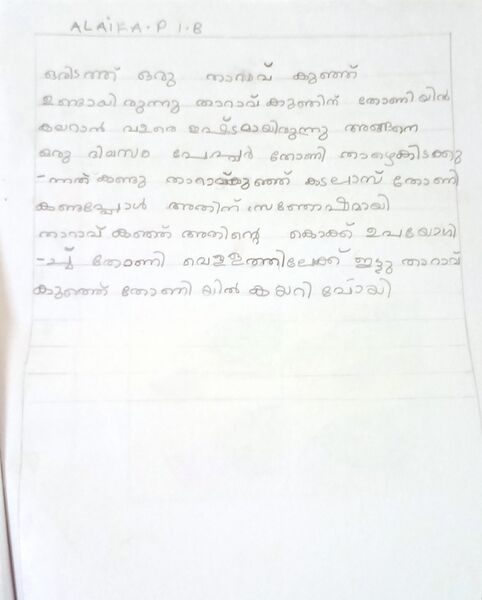 ALAIKA.P 1.B
ഒരിടത്ത് ഒരു താറാവ് കുഞ്ഞ്
ഉണ്ടായി രുന്നു താറാവ് കുഞ്ഞിന് തോണി യിൽ
കയറാൻ വളരെ ഇഷ്ടമായിരുന്നു അങ്ങനെ
ഒരു ദിവസം പേപ്പർ തോണി താഴെകിടക്കു
-ന്നത് കണ്ടു താറാവ്കുഞ്ഞ് കടലാസ് തോണി
കണ്ടപ്പോൾ അതിന് സന്തോഷമായി
താറാവ് കുഞ്ഞ് അതിന്റെ കൊക്ക് ഉപയോഗി
-ച്ച് തോണി വെള്ളത്തിലേക്ക് ഇട്ടു താറാവ്
കുഞ്ഞ് തോണി യിൽ കയറി പോയി